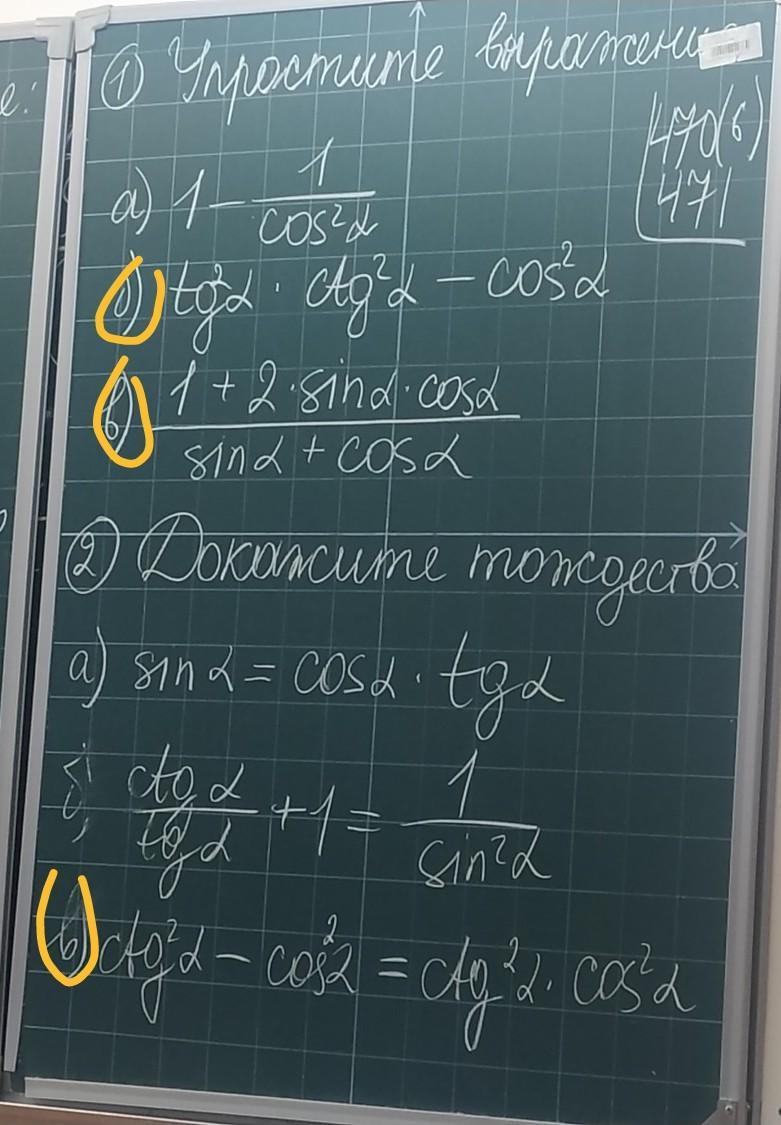 е:
① Упростите выражение
470(б)
471
а) 1 - 1/cos²α
б) tg²α · ctg²α - cos²α
в) (1 + 2·sinα·cosα)/(sinα + cosα)
② Докажите тождество:
а) sinα = cosα · tgα
б) ctgα/tgα + 1 = 1/sin²α
в) ctg²α - cos²α = ctg²α · cos²α